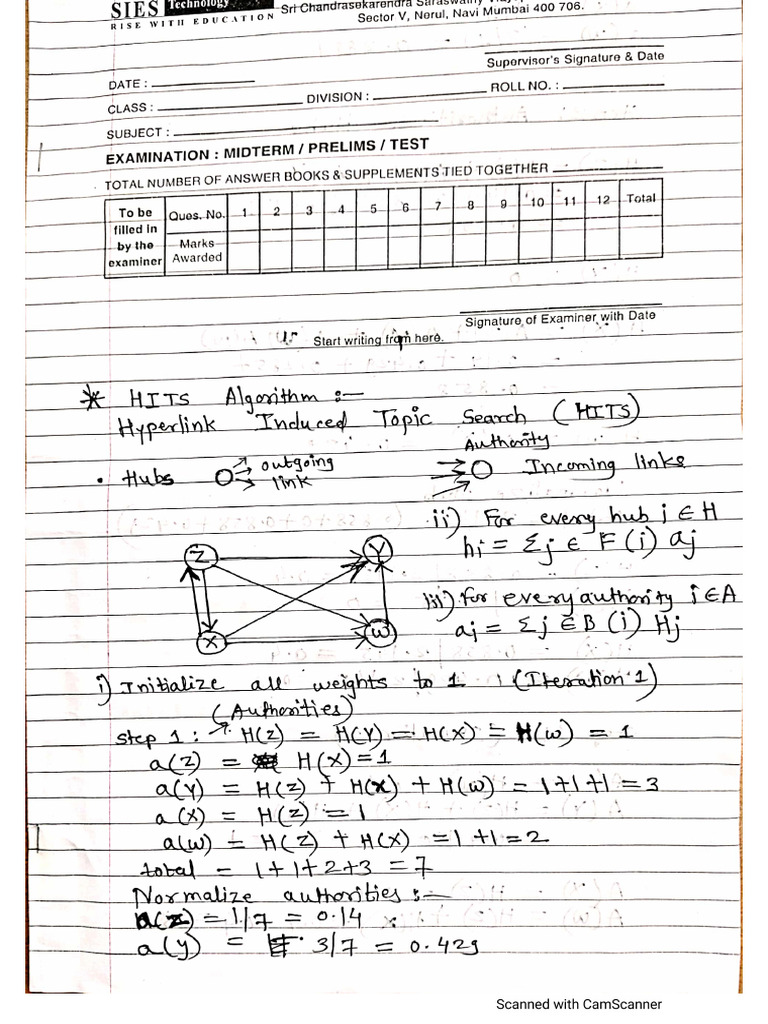 SIES Technology Sri Chandrasekarendra Saraswathy
RISE WITH EDUCATION Sector V, Nerul, Navi Mumbai 400 706.
Supervisor's Signature & Date
DATE :
CLASS : DIVISION : ROLL NO. :
SUBJECT :
EXAMINATION : MIDTERM / PRELIMS / TEST
TOTAL NUMBER OF ANSWER BOOKS & SUPPLEMENTS TIED TOGETHER
To be filled in by the examiner
Ques. No. 1 2 3 4 5 6 7 8 9 10 11 12 Total
Marks Awarded
Signature of Examiner with Date
Start writing from here.
* HITS Algorithm :-
Hyperlink Induced Topic Search (HITS)
• Hubs outgoing link
Authority Incoming links
ii) For every hub i ∈ H
hi = Σj ∈ F(i) aj
Z Y X W
iii) for every authority i ∈ A
aj = Σj ∈ B (i) Hj
i) Initialize all weights to 1 (Iteration 1)
(Authorities)
step 1: H(Z) = H(Y) = H(X) = H(w) = 1
a(Z) = H(X) = 1
a(Y) = H(Z) + H(X) + H(w) = 1+1+1 = 3
a(X) = H(Z) = 1
a(w) = H(Z) + H(X) = 1+1 = 2
total = 1+1+2+3 = 7
Normalize authorities :-
a(z) = 1/7 = 0.14
a(y) = 3/7 = 0.429
Scanned with CamScanner